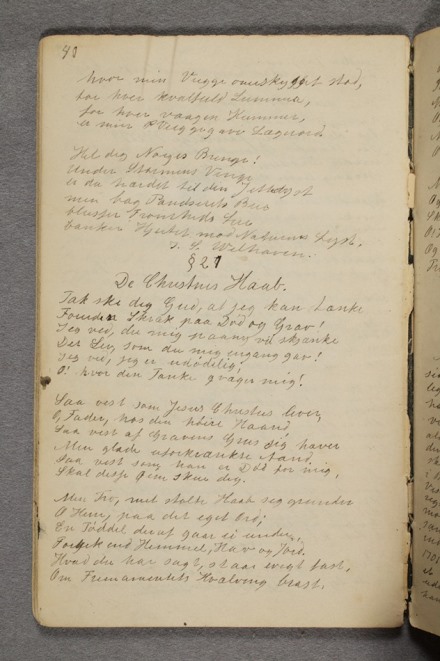 40
hvor min Vugge omskygget stod,
for hver kvalfuld Summen,
for hver vaagen Kummer,
er min Lægerod.
Hil dig Norges Bringe!
Under Stormens Vinge
er du hærdet til den
men bag Pandserets
blusser
banker Hjertet mod Naturens Lyst.
Welhaven.
§ 21
De Christnes Haab.
Tak ske dig Gud, at jeg kan tænke
Foruden Skræk paa Død og Grav!
Jeg ved, du mig paany vil skjænke
Det Liv, som du mig engang gav!
Jeg ved, jeg er udødelig!
O! hvor den Tanke qvæger mig!
Saa vest som Jesus Christus lever,
O, Fader, hos din høire Haand
Saa vest af Gravens Grus sig hæver
Min glade uforkrænkte Aand,
Saa vest som han er Død for mig,
Skal disse Øine skue dig.
Min Tro, med stolte Haab sig grunder
O Herre, paa dit eget Ord;
En Tøddel deraf gaar ei under,
Forgik end Himmel, Hav og Jord.
Hvad du har sagt, staar evigt fast,
Om Firmamentets Hvælving brast.